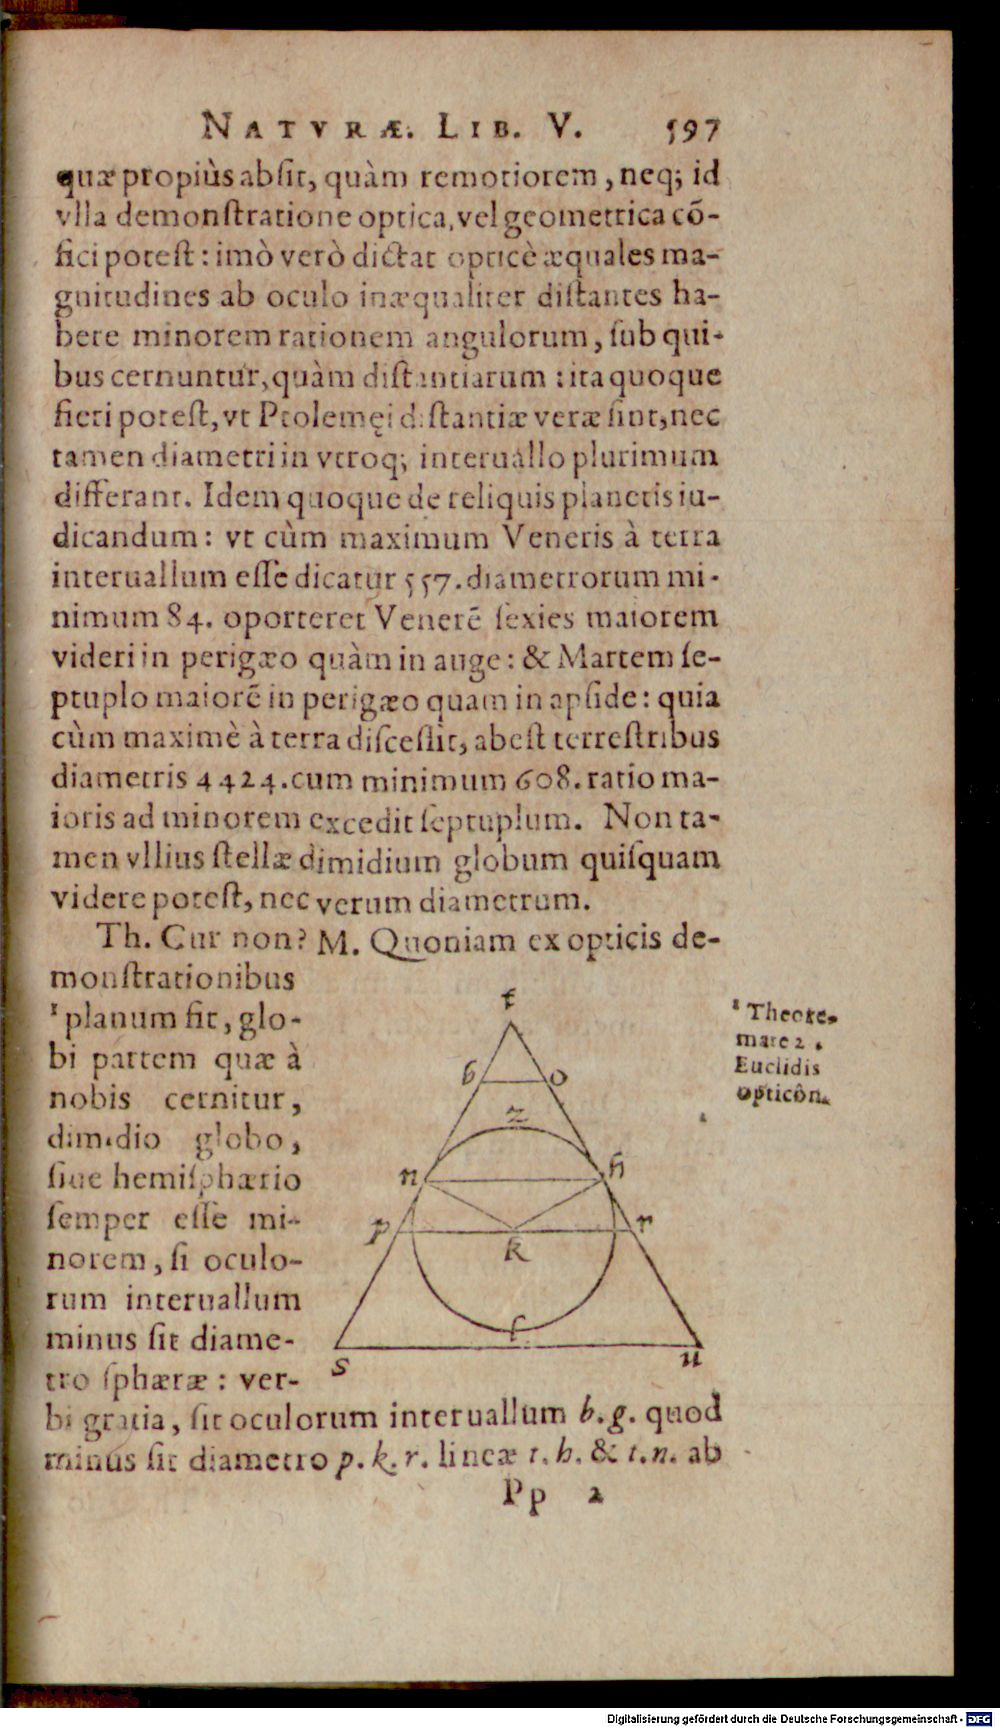 NATVRÆ. LIB. V. 597
quæ propiùs absit, quàm remotiorem, neq; id
vlla demonstratione optica, vel geometrica cō-
fici potest: imò verò dictat opticè æquales ma-
gnitudines ab oculo inæqualiter distantes ha-
bere minorem rationem angulorum, sub qui-
bus cernuntur, quàm distantiarum: ita quoque
fieri potest, vt Ptolemęi distantiæ veræ sint, nec
tamen diametri in vtroq; interuallo plurimum
differant. Idem quoque de reliquis planetis iu-
dicandum: vt cùm maximum Veneris à terra
interuallum esse dicatur 557. diametrorum mi-
nimum 84. oporteret Venerē sexies maiorem
videri in perigæo quàm in auge: & Martem se-
ptuplo maiorē in perigæo quam in apside: quia
cùm maximè à terra discessit, abest terrestribus
diametris 4424. cum minimum 608. ratio ma-
ioris ad minorem excedit septuplum. Non ta-
men vllius stellæ dimidium globum quisquam
videre potest, nec verum diametrum.
Th. Cur non? M. Quoniam ex opticis de-
monstrationibus
¹ planum fit, glo-
bi partem quæ à
nobis cernitur,
dimidio globo,
siue hemisphærio
semper esse mi-
norem, si oculo-
rum interuallum
minus sit diame-
tro sphæræ: ver-
bi gratia, sit oculorum interuallum b. g. quod
minus sit diametro p. k. r. lineæ t. h. & t. n. ab
Pp 2
¹ Theore-
mate 2.
Euclidis
opticôn.
t
b o
z
n h
p r
k
f
s u
Digitalisierung gefördert durch die Deutsche Forschungsgemeinschaft - DFG